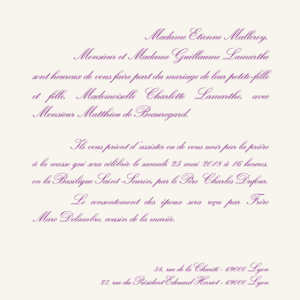 Madame Etienne Malleroy,
Monsieur et Madame Guillaume Lamarthe
sont heureux de vous faire part du mariage de leur petite-fille
et fille, Mademoiselle Charlotte Lamarthe, avec
Monsieur Matthieu de Beauregard.
Ils vous prient d'assister ou de vous unir par la prière
à la messe qui sera célébrée le samedi 25 mai 2018 à 16 heures,
en la Basilique Saint-Seurin, par le Père Charles Dufour.
Le consentement des époux sera reçu par Frère
Marc Delambre, cousin de la mariée.
54, rue de la Charité - 69000 Lyon
27, rue du Président Edouard Herriot - 69000 Lyon